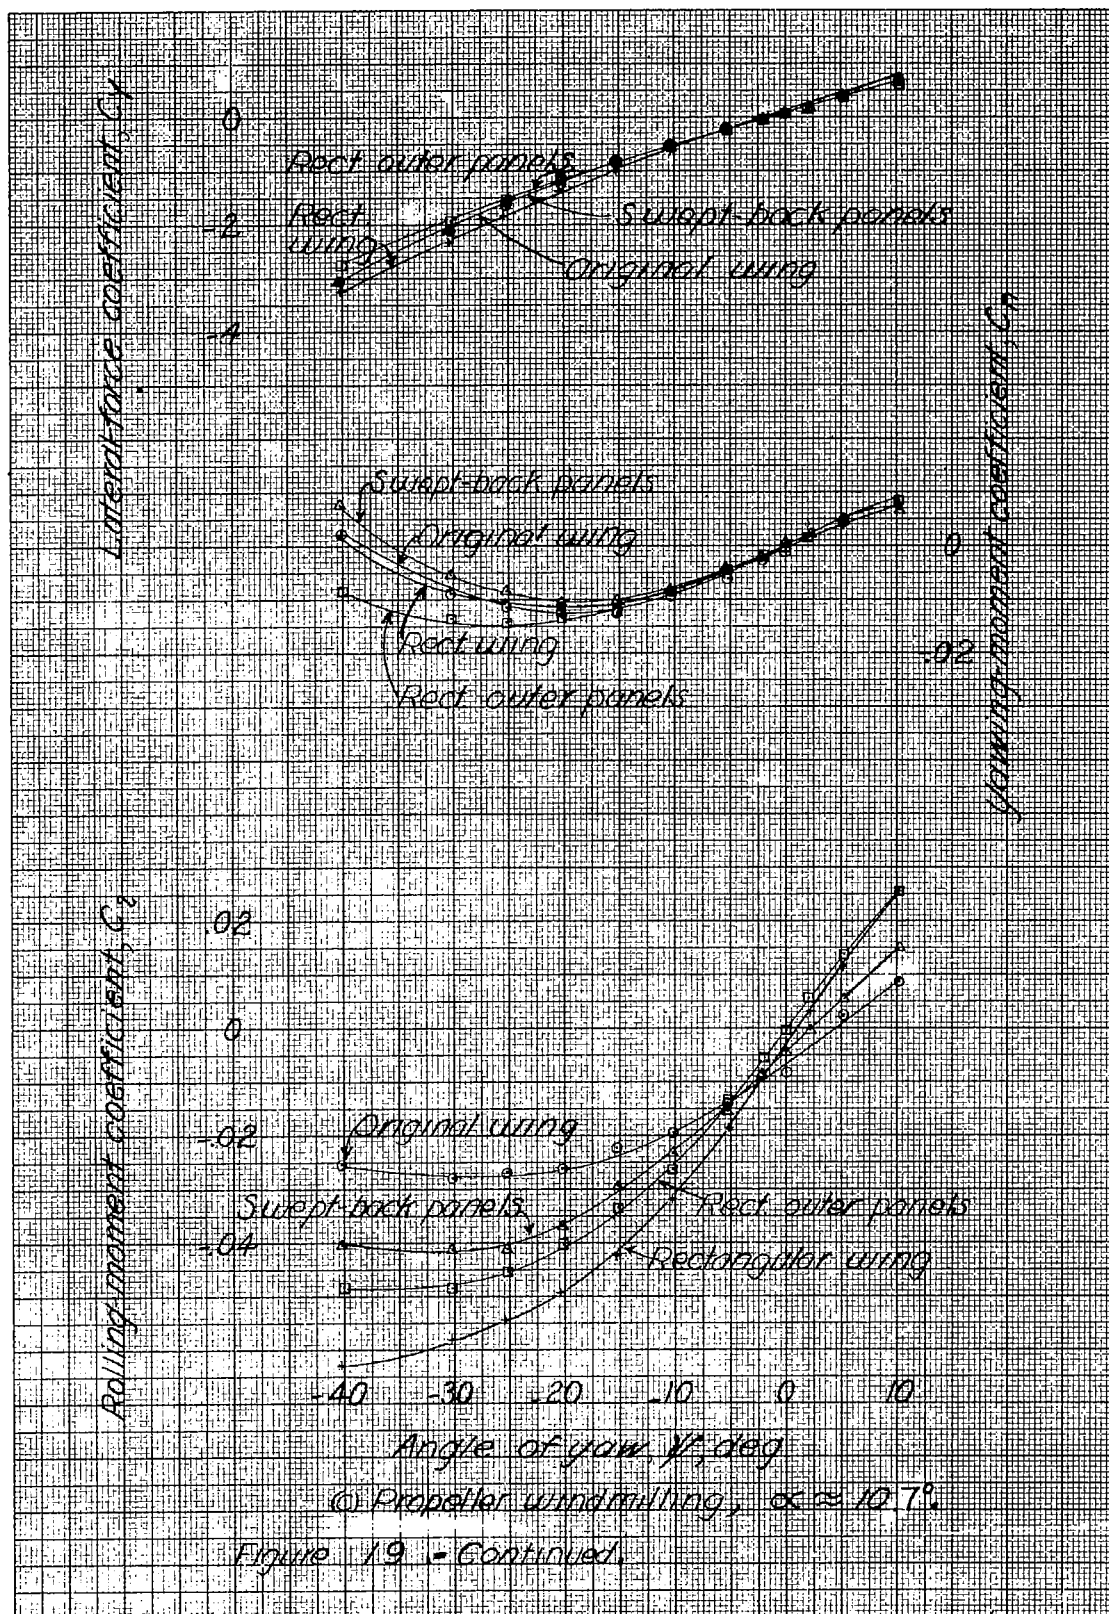 Lateral-force coefficient, CY
0
-.2
-.4
Rect outer panels
Rect.
wing
Swept-back panels
Original wing
Yawing-moment coefficient, Cn
0
-.02
Swept-back panels
Original wing
Rect wing
Rect outer panels
Rolling-moment coefficient, Cl
.02
0
-.02
-.04
Original wing
Swept-back panels
Rect outer panels
Rectangular wing
-40 -30 -20 -10 0 10
Angle of yaw, ψ, deg
(c) Propeller windmilling, α ≈ 10.7°.
Figure 19 .- Continued.